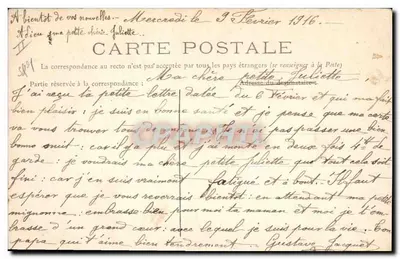 A bientôt de vos nouvelles - Mercredi le 9 Février 1916 -
A Dieu ma petite chère Juliette
II
CARTE POSTALE
La correspondance au recto n'est pas acceptée par tous les pays étrangers (se renseigner à la Poste)
Partie réservée à la correspondance Adresse du destinataire
Ma chère petite Juliette
J'ai reçu ta petite lettre datée du 6 Février et qui m'a fait
bien plaisir : je suis en bonne santé et je pense que ma carte
va vous trouver tous passer une
bonne nuit : car il j'ai monté en deux fois 4h de
garde : je voudrais ma chère petite Juliette que tout cela soit
fini : car j'en suis vraiment fatigué et à bout. Il faut
espérer que je vous reverrais bientôt : en attendant ma petite
mignonne : embrasse bien pour moi ta maman et moi je t'em
brasse d'un grand cœur : avec lequel je suis pour la vie. Ton
papa qui t'aime bien tendrement - Gustave Jacquet